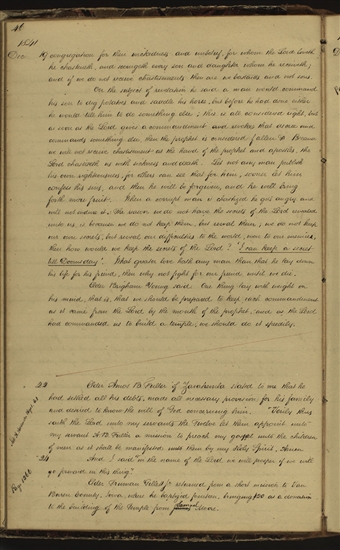 46
1841
Dec. 19 congregation for their wickedness and unbelief, for whom the Lord loveth
he chasteneth, and scourgeth every son and daughter whom he receiveth;
and if we do not receive chastisements then are we bastards and not sons.
On the subject of revelation he said, a man would command
his son to dig potatoes and saddle his horse, but before he had done either
he would tell him to do something else; this is all considered right, but
as soon as the Lord gives a commandment and revokes that decree and
commands something else then the prophet is considered fallen &. Because
we will not receive chastisement at the hand of the prophet and apostles, the
Lord chastiseth us with sickness and death. Let not any man publish
his own righteousness, for others can see that for him, sooner let him
confess his sins, and then he will be forgiven, and he will bring
forth more fruit. When a corrupt man is chastised he gets angry and
will not endure it. The reason we do not have the secrets of the Lord revealed
unto us, is because we do not keep them, but reveal them; we do not keep
our own secrets, but reveal our difficulties to the world, even to our enemies,
then how would we keep the secrets of the Lord? "I can keep a secret
till Doomsday". What greater love hath any man than that he lay down
his life for his friend, then why not fight for our friend, until we die.
Elder Brigham Young said: One thing lay with weight on
his mind, that is, that we should be prepared to keep each commandment
as it came from the Lord by the mouth of the prophet, and as the Lord
had commanded us to build a temple, we should do it speedily.
22 Elder Amos B. Fuller of Zarahemla stated to me that he
had settled all his debts, made all necessary provision for his family
and desired to know the will of God concerning him. "Verily thus
saith the Lord unto my servants the Twelve let them appoint unto
my servant A. B. Fuller a mission to preach my gospel unto the children
of men as it shall be manifested unto them by my Holy Spirit, Amen.
24 And I said "in the name of the Lord we will prosper if we will
go forward in this thing."
Elder Truman Gillet jr returned from a short mission to Van
Buren County, Iowa, where he baptized fourteen, bringing $20 as a donation
to the building of the Temple from Moore.